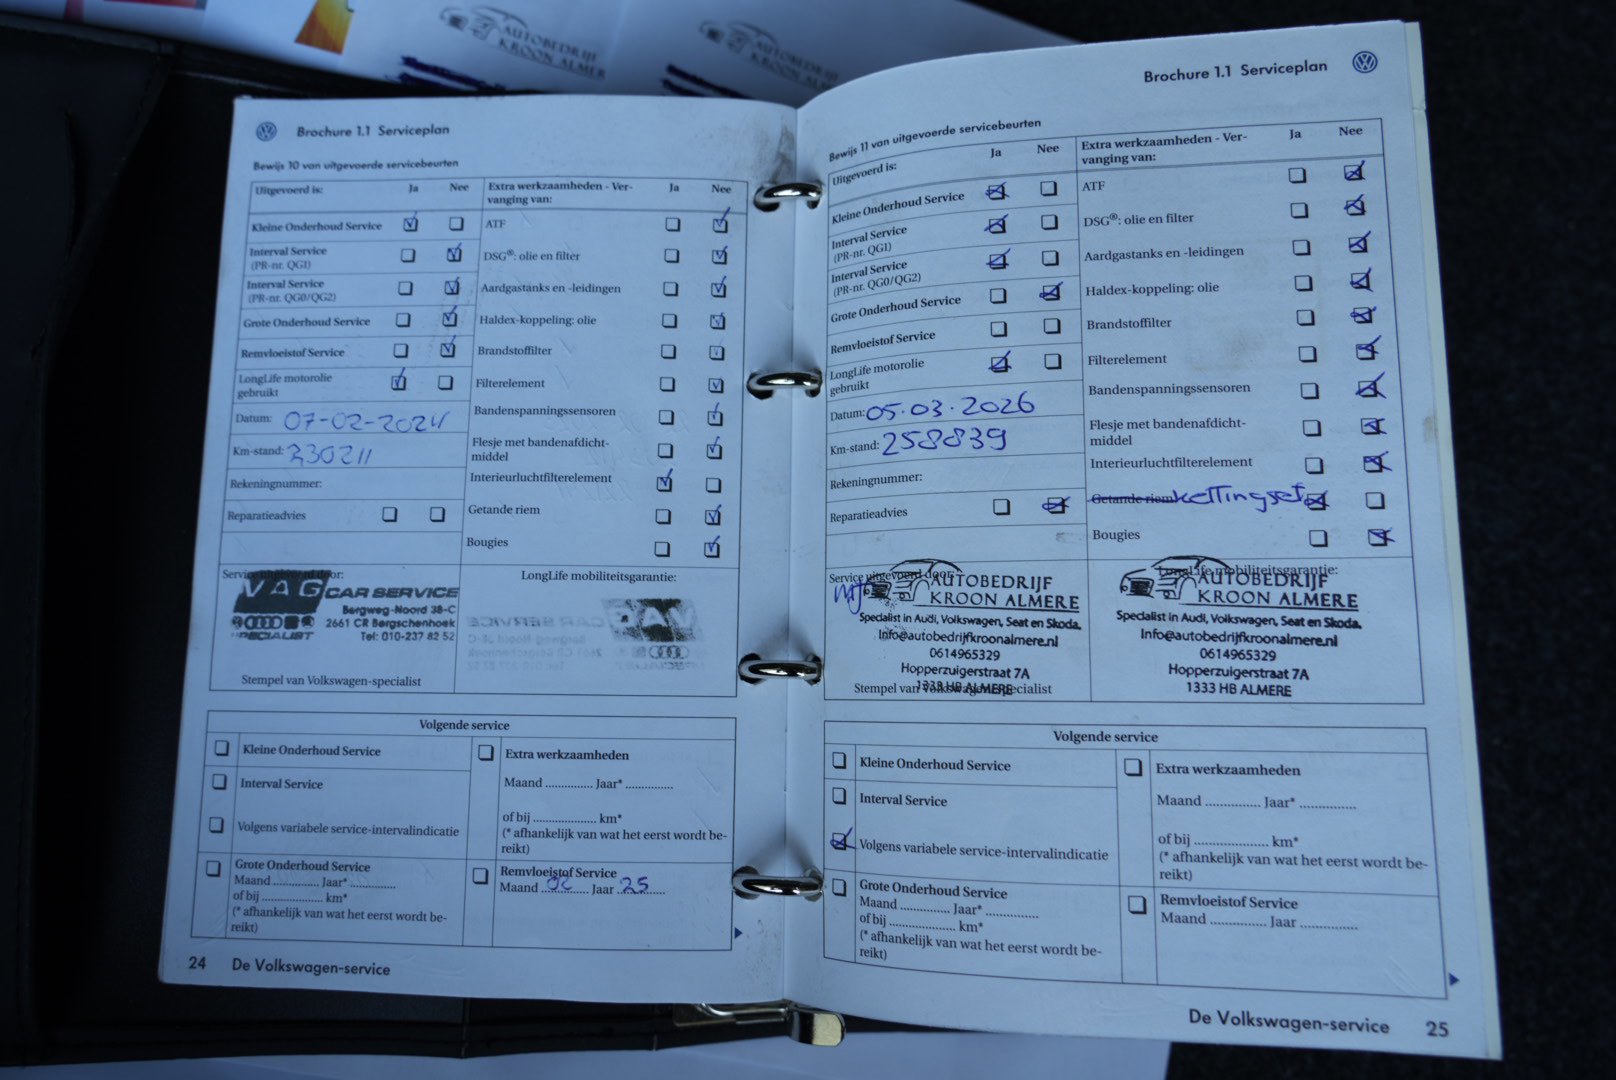 AUTOBEDRIJF
KROON ALMERE
AUTOBEDRIJF
KROON ALMERE
Brochure 1.1 Serviceplan
Bewijs 10 van uitgevoerde servicebeurten
Uitgevoerd is: Ja Nee
Kleine Onderhoud Service
Interval Service
(PR-nr. QG1)
Interval Service
(PR-nr. QG0/QG2)
Grote Onderhoud Service
Remvloeistof Service
LongLife motorolie
gebruikt
Datum: 07-02-2024
Km-stand: 230211
Rekeningnummer:
Reparatieadvies
Extra werkzaamheden - Ver-
vanging van: Ja Nee
ATF
DSG®: olie en filter
Aardgastanks en -leidingen
Haldex-koppeling: olie
Brandstoffilter
Filterelement
Bandenspanningssensoren
Flesje met bandenafdicht-
middel
Interieurluchtfilterelement
Getande riem
Bougies
VAG CAR SERVICE
Bergweg-Noord 38-C
2661 CR Bergschenhoek
Tel: 010-237 82 52
SPECIALIST
Stempel van Volkswagen-specialist
LongLife mobiliteitsgarantie:
Volgende service
Kleine Onderhoud Service
Interval Service
Volgens variabele service-intervalindicatie
Grote Onderhoud Service
Maand .............. Jaar* ..............
of bij .......................... km*
(* afhankelijk van wat het eerst wordt be-
reikt)
Extra werkzaamheden
Maand .............. Jaar* ..............
of bij ................... km*
(* afhankelijk van wat het eerst wordt be-
reikt)
Remvloeistof Service
Maand 02 Jaar 25
24 De Volkswagen-service
Brochure 1.1 Serviceplan
Bewijs 11 van uitgevoerde servicebeurten
Uitgevoerd is: Ja Nee
Kleine Onderhoud Service
Interval Service
(PR-nr. QG1)
Interval Service
(PR-nr. QG0/QG2)
Grote Onderhoud Service
Remvloeistof Service
LongLife motorolie
gebruikt
Datum: 05.03.2026
Km-stand: 258839
Rekeningnummer:
Reparatieadvies
Extra werkzaamheden - Ver-
vanging van: Ja Nee
ATF
DSG®: olie en filter
Aardgastanks en -leidingen
Haldex-koppeling: olie
Brandstoffilter
Filterelement
Bandenspanningssensoren
Flesje met bandenafdicht-
middel
Interieurluchtfilterelement
Getande riem kettingset
Bougies
Service uitgevoerd door:
AUTOBEDRIJF
KROON ALMERE
Specialist in Audi, Volkswagen, Seat en Skoda.
Info@autobedrijfkroonalmere.nl
0614965329
Hopperzuigerstraat 7A
1333 HB ALMERE
Stempel van Volkswagen-specialist
LongLife mobiliteitsgarantie:
AUTOBEDRIJF
KROON ALMERE
Specialist in Audi, Volkswagen, Seat en Skoda.
Info@autobedrijfkroonalmere.nl
0614965329
Hopperzuigerstraat 7A
1333 HB ALMERE
Volgende service
Kleine Onderhoud Service
Interval Service
Volgens variabele service-intervalindicatie
Grote Onderhoud Service
Maand .............. Jaar* ..............
of bij .......................... km*
(* afhankelijk van wat het eerst wordt be-
reikt)
Extra werkzaamheden
Maand .............. Jaar* ..............
of bij .......................... km*
(* afhankelijk van wat het eerst wordt be-
reikt)
Remvloeistof Service
Maand .............. Jaar ..............
De Volkswagen-service 25